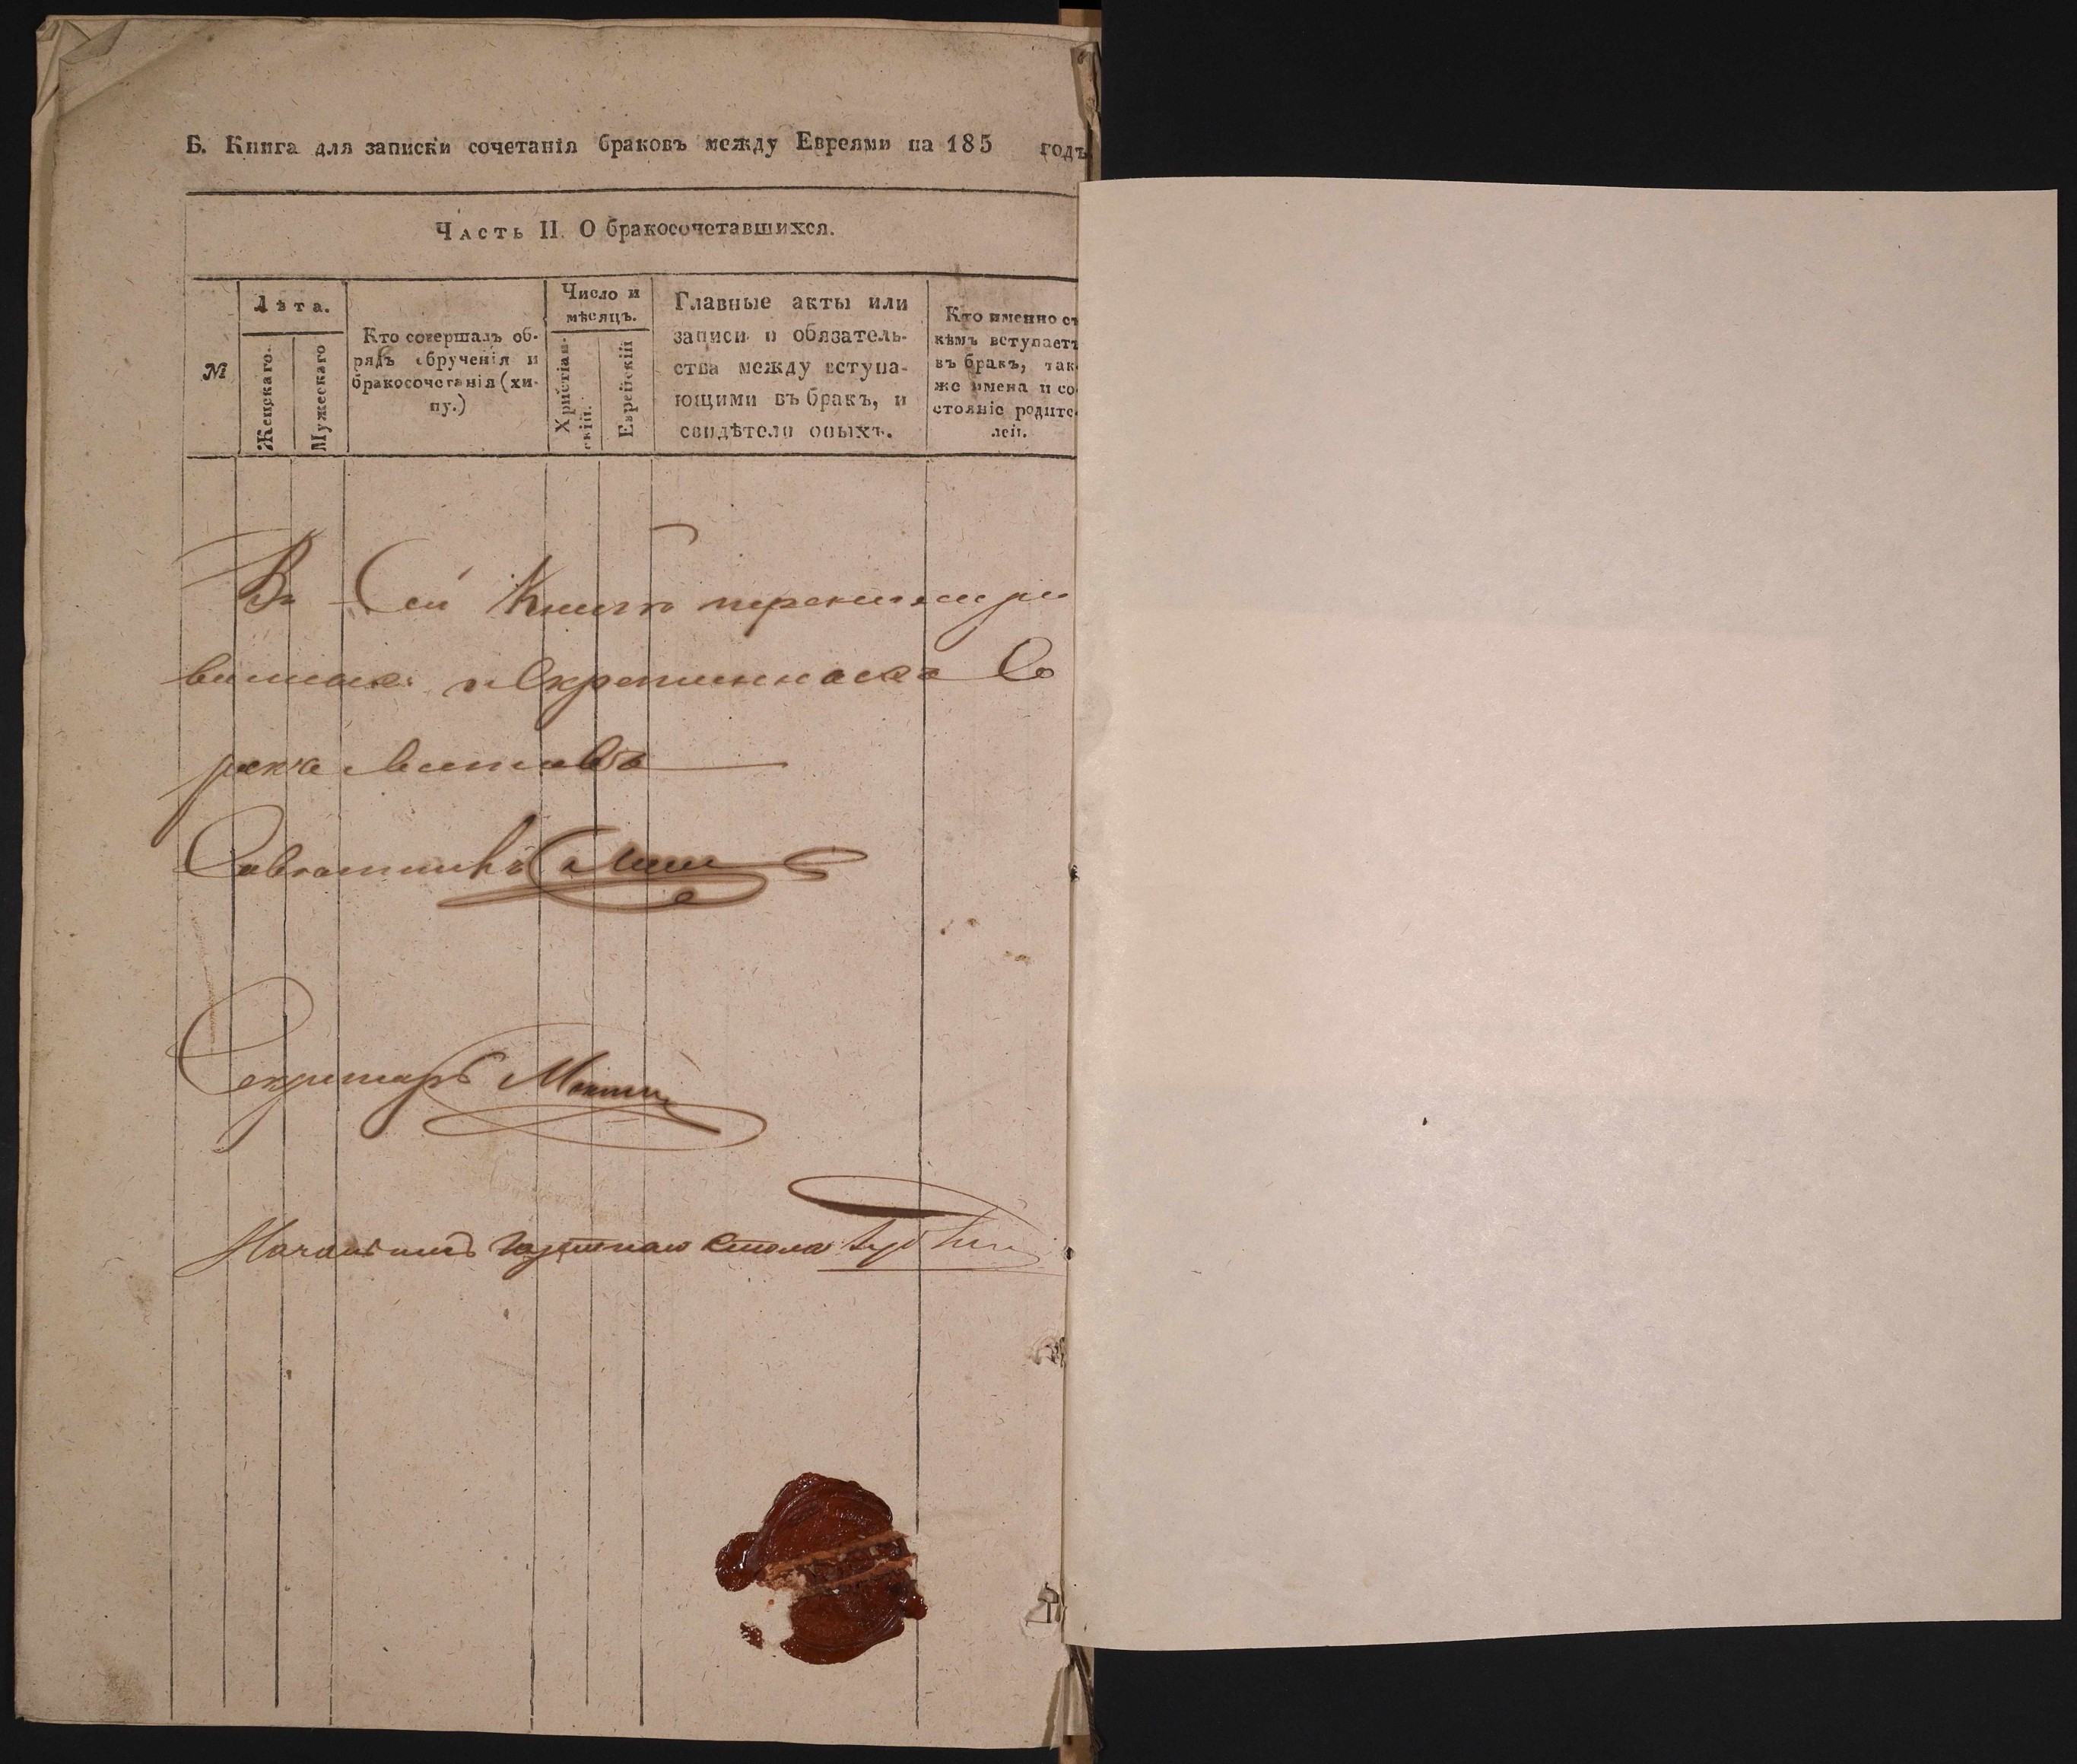 Б. Книга для записки сочетанія браковъ между Евреями на 185 годъ
Часть II. О бракосочетавшихся.
№
Лѣта.
Женскаго.
Мужескаго
Кто совершалъ об-
рядъ обрученія и
бракосочетанія (хи-
пу.)
Число и
мѣсяцъ.
Христіан-
скій.
Еврейскій
Главные акты или
записи и обязатель-
ства между вступа-
ющими въ бракъ, и
свидѣтели оныхъ.
Кто именно съ
кѣмъ вступаетъ
въ бракъ, так-
же имена и со-
стояніе родите-
лей.
Въ Сей Книгѣ
Со
рока Листовъ
Совѣтникъ
Секретарь
Начальникъ стола